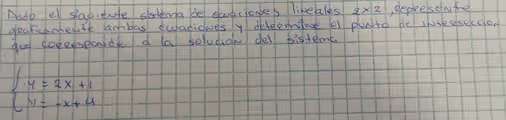 Dado el siguiente sistema de ecuaciones lineales 2x2, represente
graficamente ambas ecuaciones y determine el punto de intersección
que corresponde a la solución del sistema
y = 2x + 1
y = -x + 4